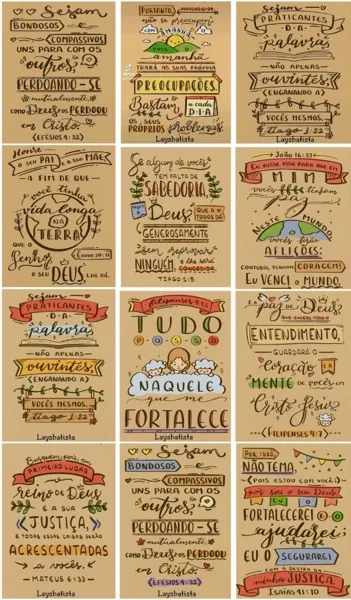 Sejam
BONDOSOS e
COMPASSIVOS
UNS PARA COM OS
outros,
PERDOANDO-SE
mutualmente,
COMO Deus OS PERDOOU
em Cristo.
(EFÉSIOS 4:32)
PORTANTO,
não se preocupem
COM O AMANHÃ
POIS O
amanhã
TRARÁ AS SUAS PRÓPRIA
PREOCUPAÇÕES.
Bastam a cada DIA
OS SEUS
PRÓPRIOS problemas
Laysbatista
Sejam
PRATICANTES
DA
palavra,
NÃO APENAS
ouvintes,
(ENGANANDO A)
VOCÊS MESMOS.
tiago 1:22
Laysbatista
Honre
O SEU PAI E A SUA MÃE
A FIM DE QUE
você tenha
vida longa
NA
TERRA
QUE O
Senhor
O SEU DEUS LHE DÁ.
Se algum de vocês
TEM FALTA DE
SABEDORIA,
Deus, QUE A TODOS DÁ
GENEROSAMENTE
sem reprovar
NINGUÉM E LHE SERÁ CONCEDIDA.
TIAGO 1:5
João 16:33
EU DISSE ISSO PARA QUE EM
MIM
vocês tenham
paz
NESTE MUNDO
vocês terão
AFLIÇÕES;
CONTUDO, TENHAM CORAGEM!
EU VENCI O MUNDO.
Sejam
PRATICANTES
DA
palavra,
NÃO APENAS
ouvintes,
(ENGANANDO A)
VOCÊS MESMOS.
tiago 1:22
Laysbatista
Filipenses 4:13
TUDO
POSSO
NAQUELE
que me
FORTALECE
Laysbatista
E a paz de Deus,
QUE EXCEDE TODO O
ENTENDIMENTO,
GUARDARÁ O
Coração E A
MENTE de vocês em
Cristo Jesus.
(FILIPENSES 4:7)
Busquem, pois, em
PRIMEIRO LUGAR
O reino de Deus
E A SUA
JUSTIÇA,
E TODAS ESSAS COISAS SERÃO
ACRESCENTADAS
a vocês.
MATEUS 6:33
Laysbatista
Sejam
BONDOSOS e
COMPASSIVOS
UNS PARA COM OS
outros,
PERDOANDO-SE
mutualmente,
COMO Deus OS PERDOOU
em Cristo.
(EFÉSIOS 4:32)
Laysbatista
Por isso,
NÃO TEMA,
(POIS ESTOU COM VOCÊ)
pois sou o seu Deus.
FORTALECEREI E O
ajudarei;
EU O SEGURAREI
COM A DESTRA DA
minha JUSTIÇA.
ISAÍAS 41:10